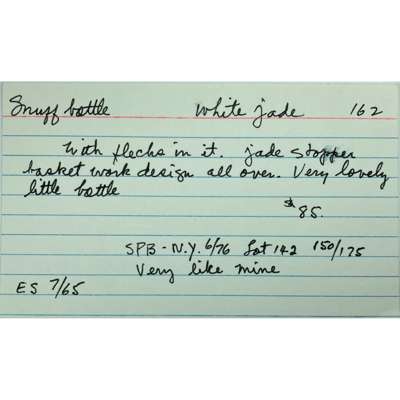 Snuff bottle white jade 162
With flecks in it. jade stopper
basket work design all over. Very lovely
little bottle
$85.
SPB - N.Y. 6/76 Lot 142 150/175
Very like mine
ES 7/65